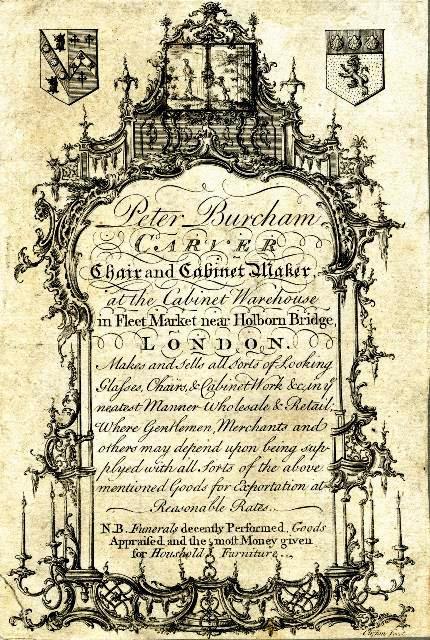 Peter Burcham
CARVER
Chair and Cabinet Maker,
at the Cabinet Warehouse
in Fleet Market near Holborn Bridge,
LONDON.
Makes and Sells all Sorts of Looking
Glasses, Chairs, & Cabinet Work &c. in yͤ
neatest Manner Wholesale & Retail;
Where Gentlemen, Merchants and
others may depend upon being sup-
plyed with all Sorts of the above
mentioned Goods for Exportation at
Reasonable Rates.
N.B. Funerals decently Performed, Goods
Appraised and the most Money given
for Houshold Furniture.